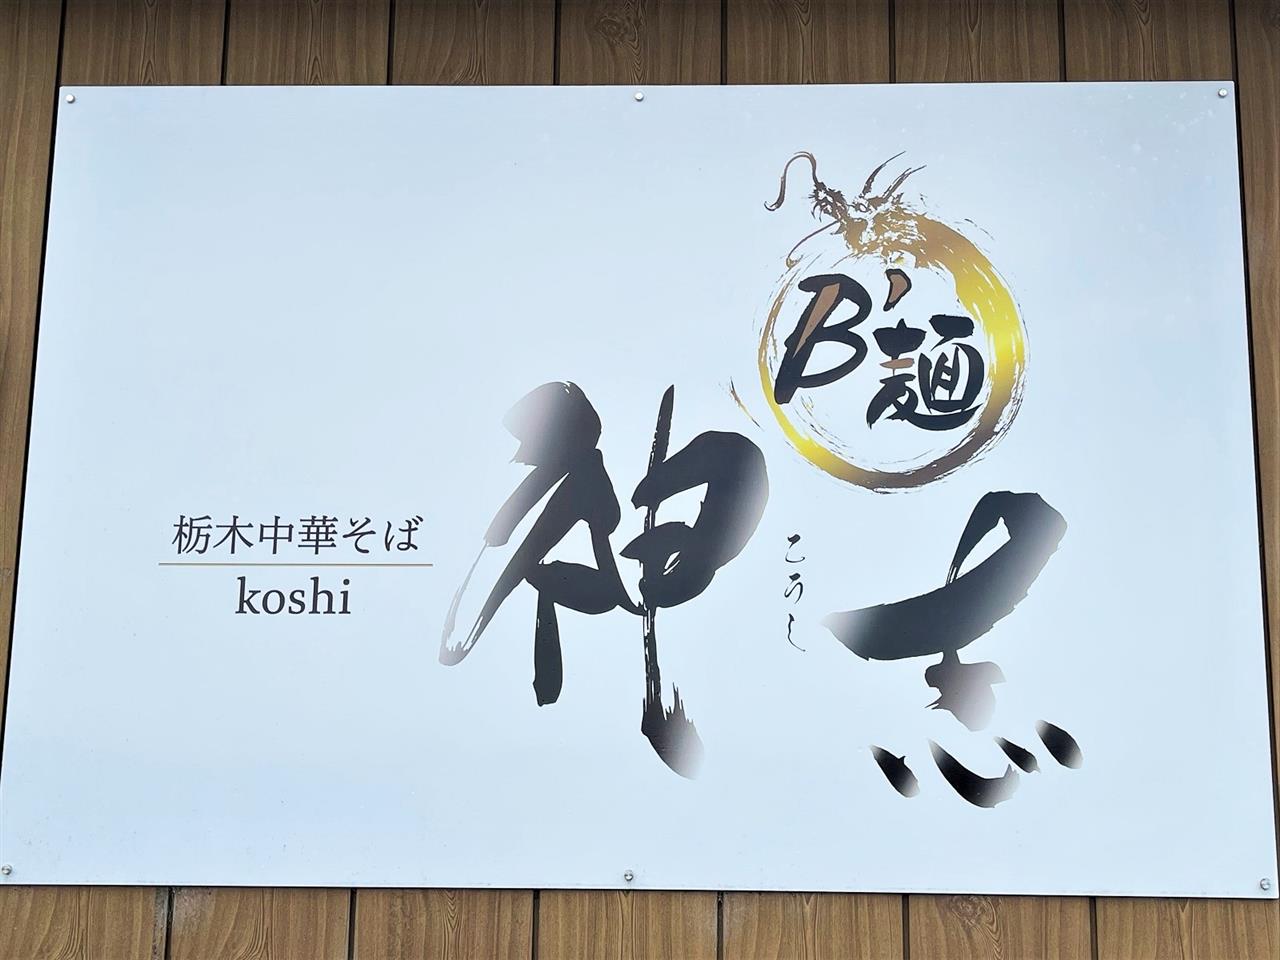 B'麺
神志
こうし
栃木中華そば
koshi